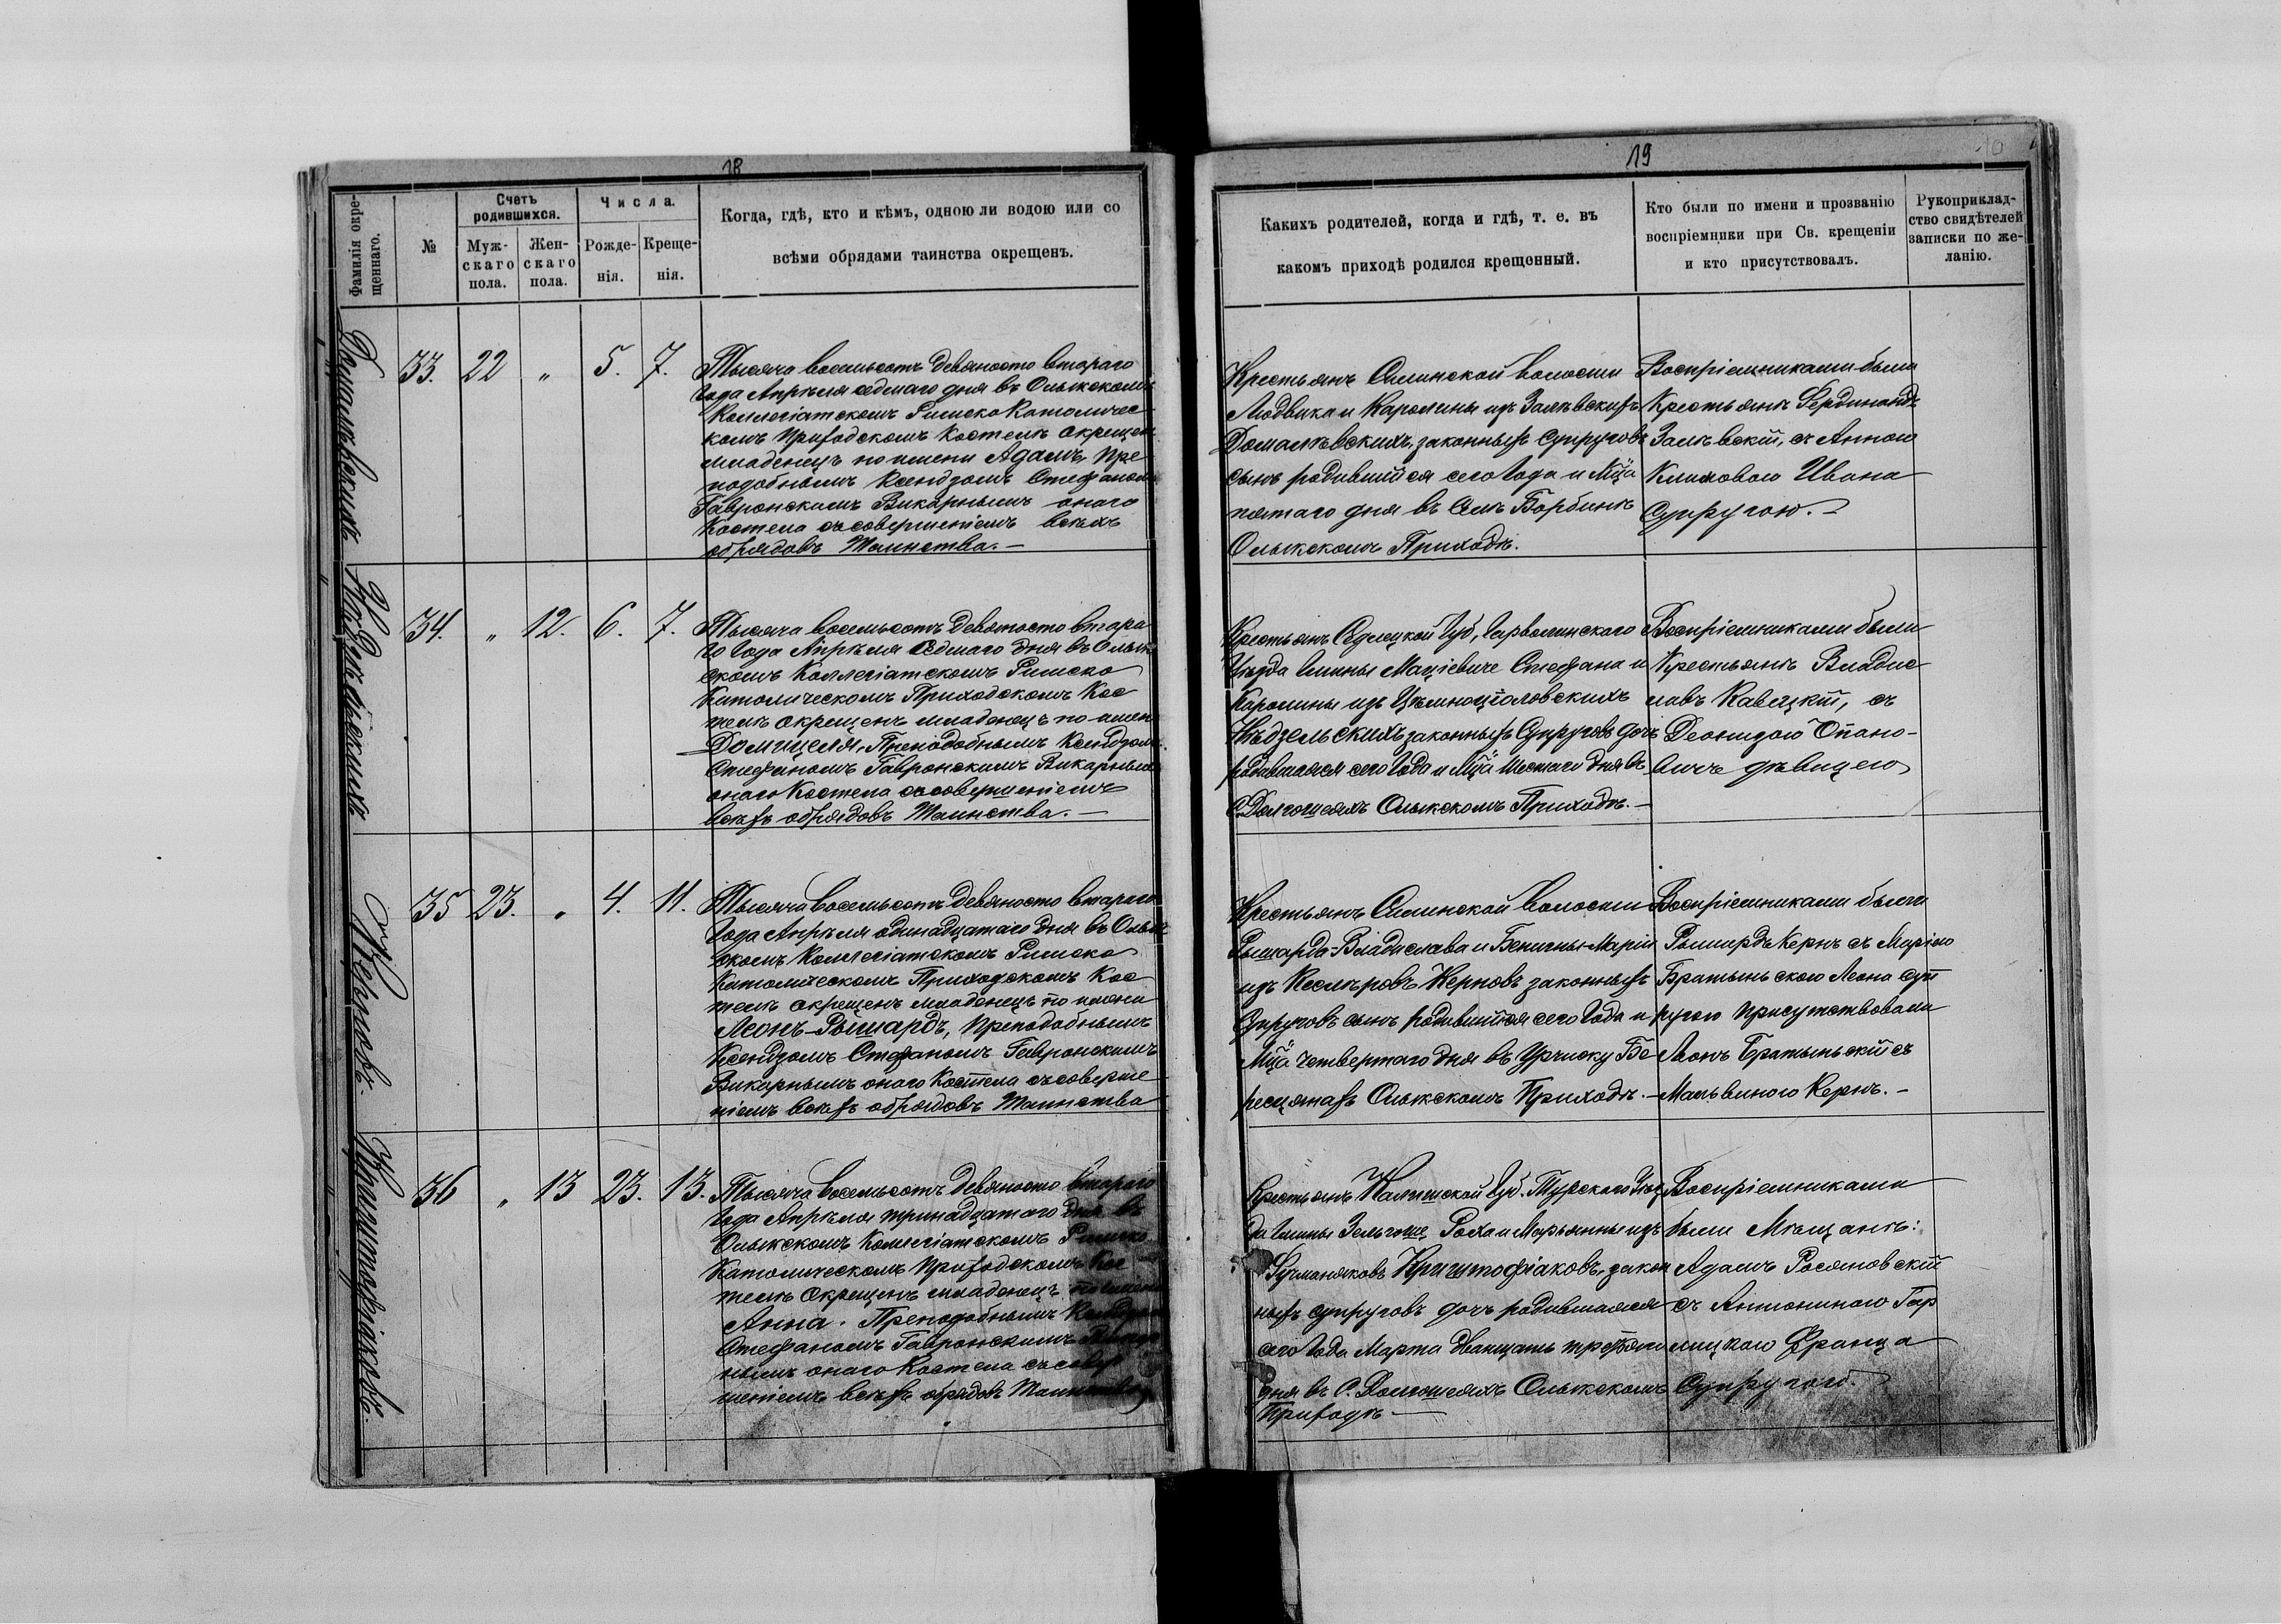 18
Фамилія окре-
щеннаго.
№
Счетъ
родившихся.
Муж-
скаго
пола.
Жен-
скаго
пола.
Числа.
Рожде-
нія.
Креще-
нія.
Когда, гдѣ, кто и кѣмъ, одною ли водою или со
всѣми обрядами таинства окрещенъ.
Домалѣвскихъ
33. 22 „ 5. 7.
Тысяча восемьсотъ девяносто втораго
года Апрѣля седмаго дня въ Олыкскомъ
Коллегіатскомъ Римско Католичес-
комъ Приходскомъ Костелѣ окрещенъ
младенецъ по имени Адамъ, Пре
подобнымъ Ксендзомъ Стефаномъ
Гавронскимъ Викарнымъ онаго
Костела съ совершеніемъ всѣхъ
обрядовъ Таинства.—
Нѣдзельскихъ
34. „ 12. 6. 7.
Тысяча восемьсотъ девяносто втора
го года Апрѣля седмаго дня въ Олык
скомъ Коллегіатскомъ Римско
Католическомъ Приходскомъ Кос
телѣ окрещенъ младенецъ по имени
Домицеля, Преподобнымъ Ксендзомъ
Стефаномъ Гавронскимъ Викарнымъ
онаго Костела съ совершеніемъ
всѣхъ обрядовъ Таинства.—
Керновъ.
35 23. „ 4. 11.
Тысяча восемьсотъ девяносто втораго
года Апрѣля одинадцатаго дня въ Олык
скомъ Коллегіатскомъ Римско
Католическомъ Приходскомъ Кос
телѣ окрещенъ младенецъ по имени
Леонъ-Рышардъ, Преподобнымъ
Ксендзомъ Стефаномъ Гавронскимъ
Викарнымъ онаго Костела съ соверше
ніемъ всѣхъ обрядовъ Таинства
Криштофіаковъ.
36 „ 13 23. 13.
Тысяча восемьсотъ девяносто втораго
года Апрѣля тринадцатаго дня въ
Олыкскомъ Коллегіатскомъ Римско
Католическомъ Приходскомъ Кос
телѣ окрещенъ младенецъ по имени
Анна. Преподобнымъ Ксендзомъ
Стефаномъ Гавронскимъ Викар
нымъ онаго Костела съ совер
шеніемъ всѣхъ обрядовъ Таинства
19
10
Какихъ родителей, когда и гдѣ, т. е. въ
какомъ приходѣ родился крещенный.
Кто были по имени и прозванію
воспріемники при Св. крещеніи
и кто присутствовалъ.
Рукоприклад-
ство свидѣтелей
записки по же-
ланію.
Крестьянъ Силинской волости
Людвика и Каролины изъ Залѣвскихъ
Домалѣвскихъ, законныхъ супруговъ
сынъ родившійся сего года и Мца
пятаго дня въ Селѣ Борбинѣ
Олыкскомъ Приходѣ.
Воспріемниками были
Крестьянѣ Фердинандъ
Залѣвскій, съ Анною
Климовою Ивана
Супругою.—
Крестьянъ Сѣдлецкой губ, Гарволинскаго
Уѣзда Гмины Маціевиче Стефана и
Каролины изъ
Нѣдзельскихъ законныхъ супруговъ дочь
родившаяся сего года и Мца шестаго дня въ
С. Долгошеяхъ Олыкскомъ Приходѣ.—
Воспріемниками были
Крестьянѣ Владис
лавъ Кавецкій, съ
Леонидою Опано-
вичъ дѣвицею
Крестьянъ Силинской волости
Рышарда-Владислава и Бенигны-Маріи
изъ Кесслѣровъ Керновъ законныхъ
супруговъ сынъ родившійся сего года и
Мца четвертаго дня въ Урчиску Бе
рестянахъ Олыкскомъ Приходѣ.—
Воспріемниками были
Рышардъ Кернъ съ Маріею
Братыньскою Леона суп
ругою присутствовали
Леонъ Братыньскій съ
Мальвиною Кернъ.—
Крестьянъ Калишской губ. Турскаго Уѣз
да Гмины Зельгоще Роха и Марьянны изъ
Криштофіаковъ, закон
ныхъ супруговъ дочь родившаяся
сего года Марта двадцать третяго
дня въ С. Долгошеяхъ Олыкскомъ
Приходѣ—
Воспріемниками
были Мѣщанѣ:
Адамъ Росяновскій
съ Антониною Гар
лицкою Франца
Супругою.